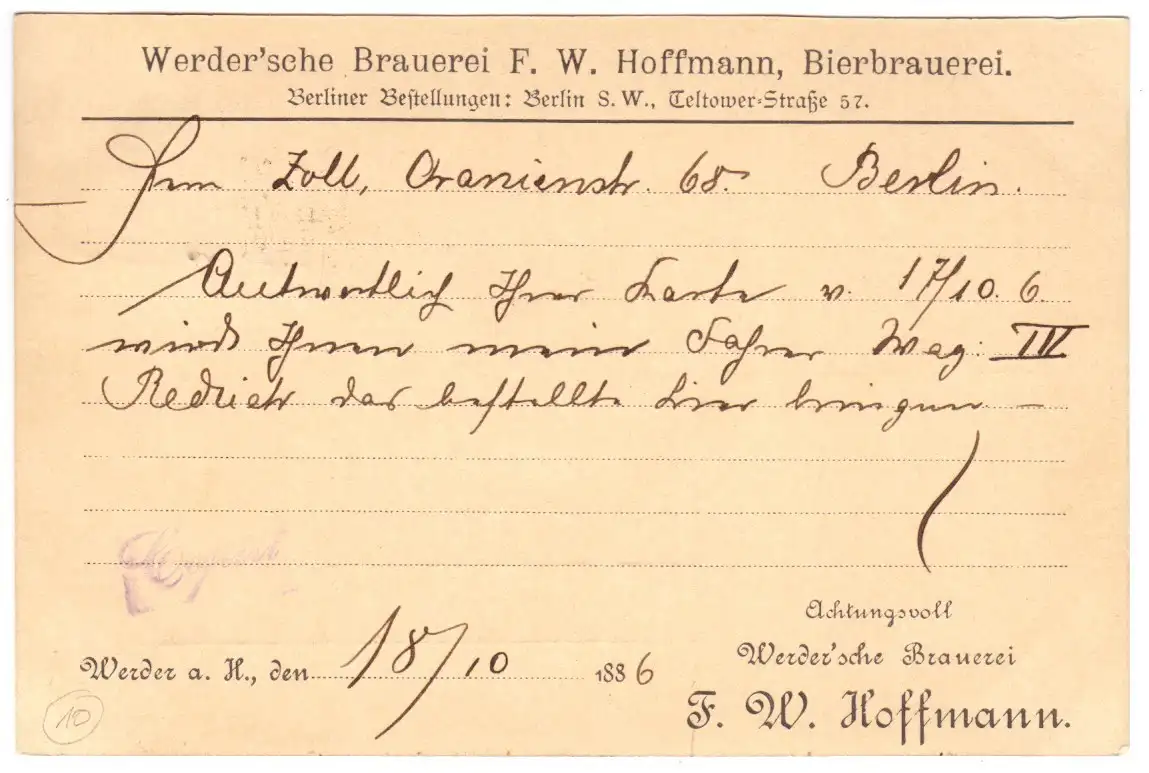 Werder'sche Brauerei F. W. Hoffmann, Bierbrauerei.
Berliner Bestellungen: Berlin S. W., Teltower-Straße 57.
Herrn Zoll, Oranienstr. 68. Berlin.
Antwortlich Ihrer Karte v. 17/10. 6.
wird Ihnen mein Fahrer Wag: III
das bestellte Bier bringen —
Achtungsvoll
Werder a. H., den 18/10 1886
Werder'sche Brauerei
F. W. Hoffmann.
10